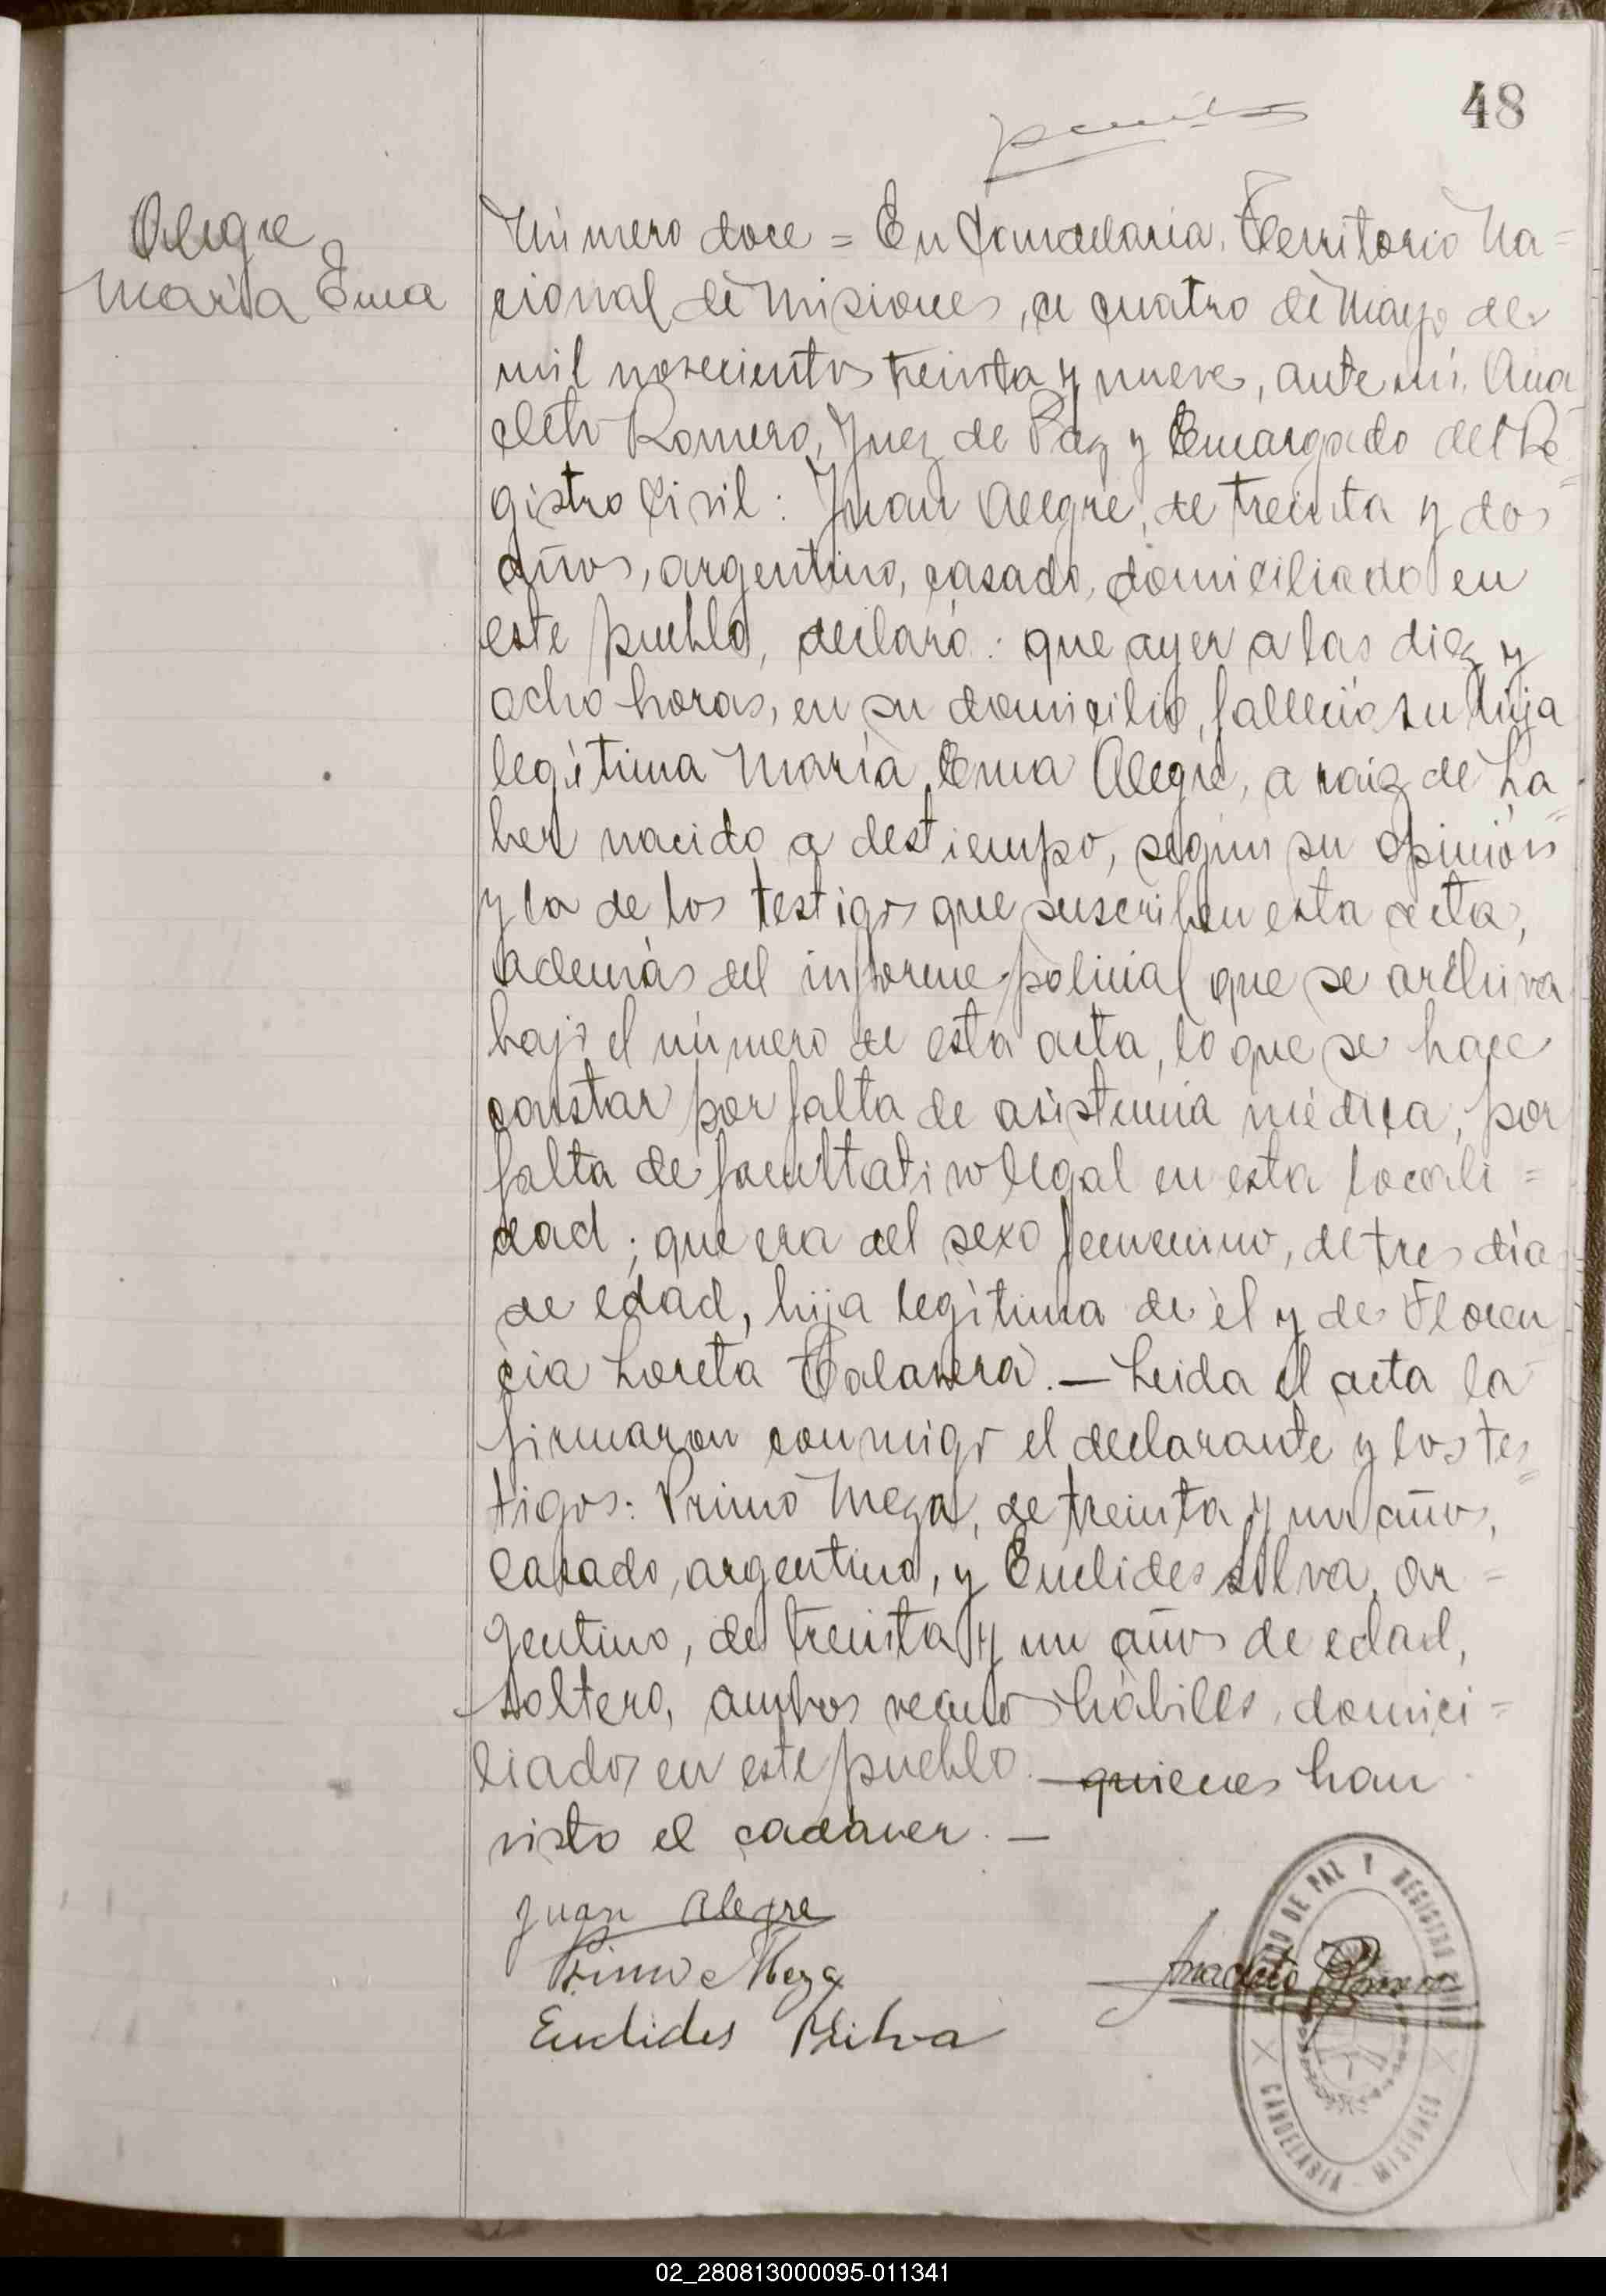 48
Alegre
María Ema
Número doce = En Candelaria, Territorio Na=
cional de Misiones, a cuatro de Mayo de
mil novecientos treinta y nueve, ante mí, Ana
cleto Romero, Juez de Paz y Encargado del Re=
gistro Civil: Juan Alegre, de treinta y dos
años, argentino, casado, domiciliado en
este pueblo, declaró: que ayer a las diez y
ocho horas, en su domicilio, falleció su hija
legítima María Ema Alegre, a raíz de ha=
ber nacido a destiempo, según su opinión
y la de los testigos que suscriben esta acta,
además del informe policial que se archiva
bajo el número de esta acta, lo que se hace
constar por falta de asistencia médica, por
falta de facultativo legal en esta locali=
dad; que era del sexo femenino, de tres día
de edad, hija legítima de él y de Floren
cia Loreta Talavera. — Leida el acta la
firmaron conmigo el declarante y los tes=
tigos: Primo Meza, de treinta y un años,
casado, argentino, y Euclides Silva, ar=
gentino, de treinta y un años de edad,
soltero, ambos vecinos hábiles, domici=
liados en este pueblo. — quienes han
visto el cadáver. —
Juan Alegre
Primo Meza
Anacleto Romero
Euclides Silva
JUZGADO DE PAZ Y REGISTRO CIVIL
CANDELARIA - MISIONES
02_280813000095-011341